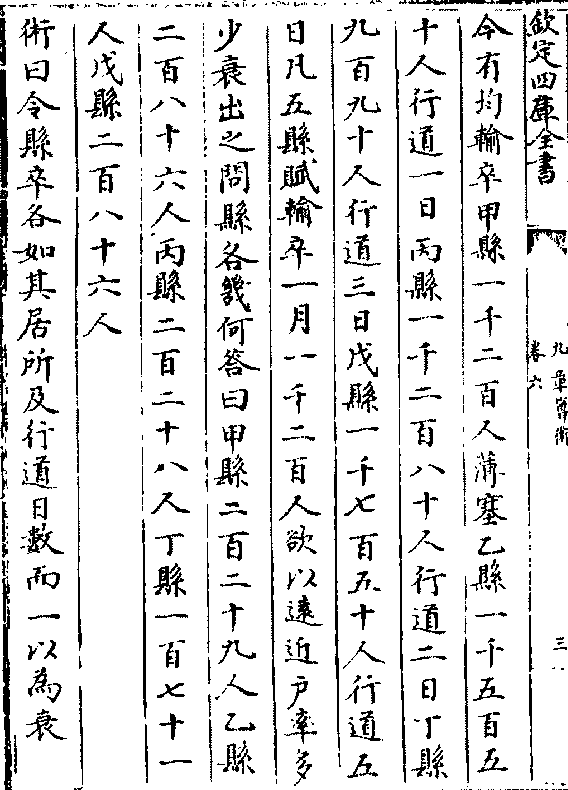 欽定四庫全書
九章算術
卷六
三
今有均輸卒甲縣一千二百人薄塞乙縣一千五百五
十人行道一日丙縣一千二百八十人行道二日丁縣
九百九十人行道三日戊縣一千七百五十人行道五
日凡五縣賦輸卒一月一千二百人欲以遠近户率多
少衰出之問縣各幾何答曰甲縣二百二十九人乙縣
二百八十六人丙縣二百二十八人丁縣一百七十一
人戊縣二百八十六人
術曰令縣卒各如其居所及行道日數而一以為衰